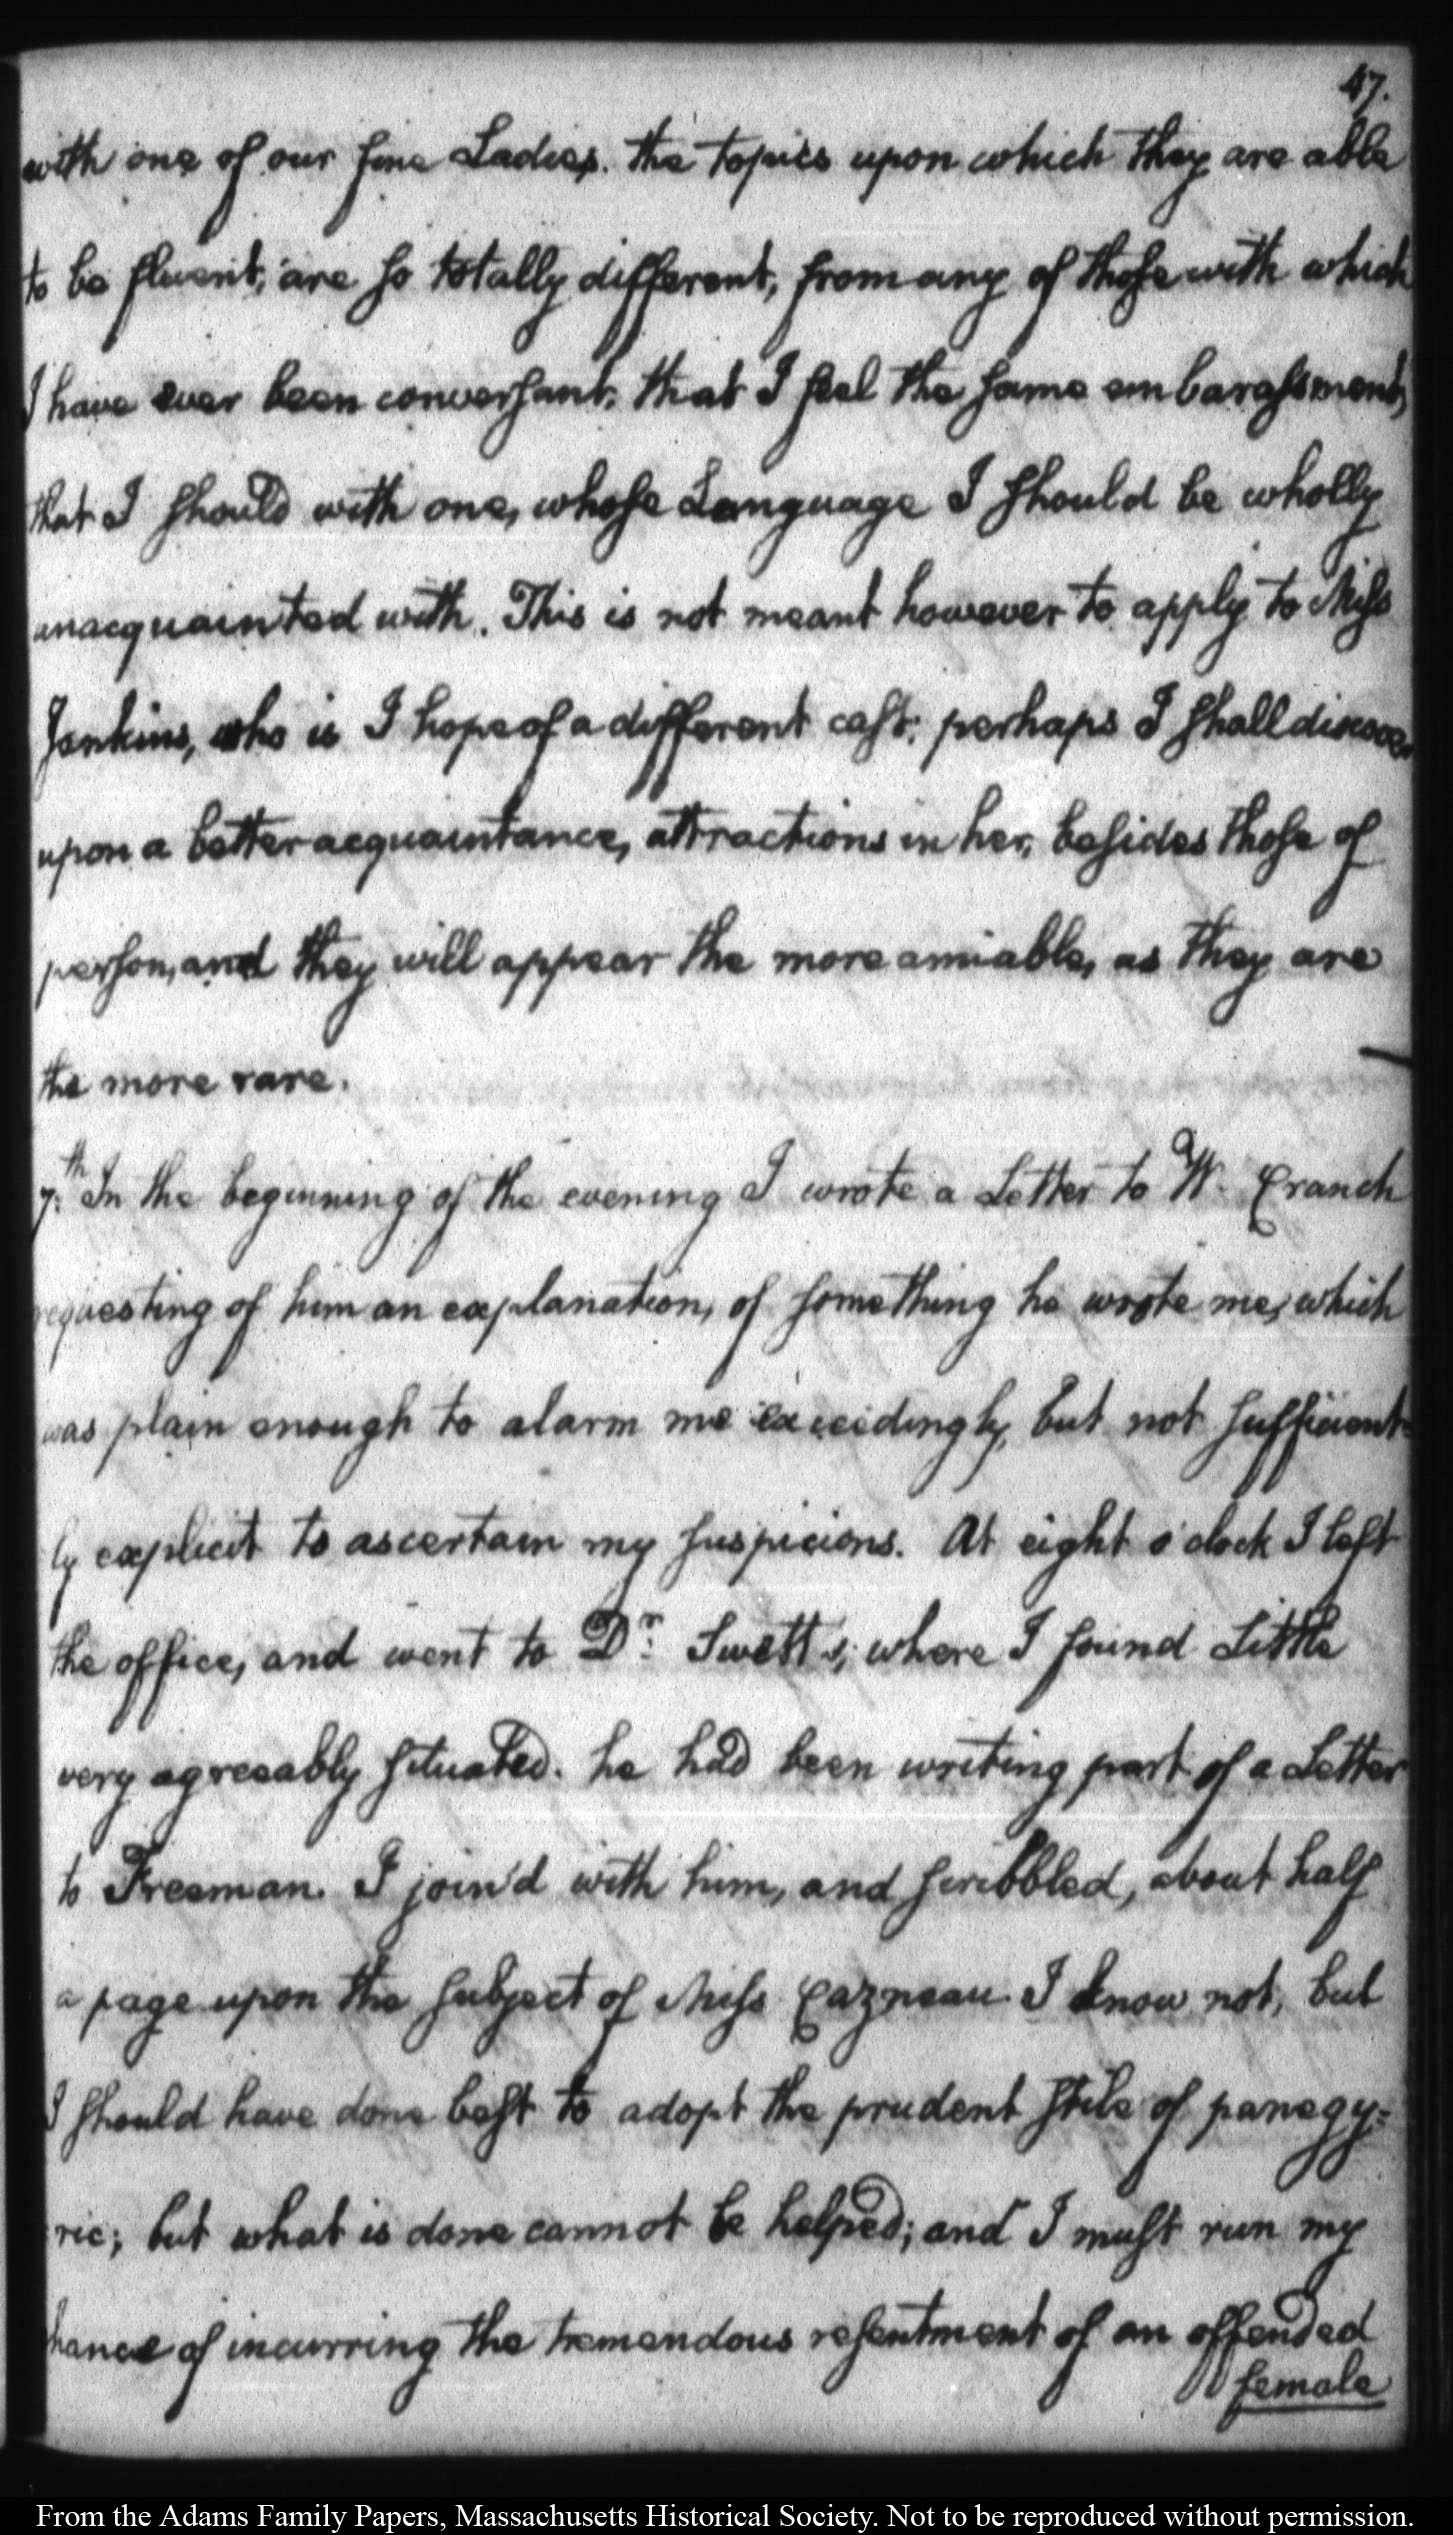 47.
with one of our fine Ladies. the topics upon which they are able
to be fluent, are so totally different, from any of those with which
I have ever been conversant, that I feel the same embarassment,
that I should with one, whose Language I should be wholly
unacquainted with. This is not meant however to apply to Miss
Jenkins, who is I hope of a different cast; perhaps I shall discover
upon a better acquaintance, attractions in her, besides those of
person, and they will appear the more amiable, as they are
the more rare.
7.th In the beginning of the evening I wrote a Letter to W. Cranch
requesting of him an explanation, of something he wrote me, which
was plain enough to alarm me exceedingly, but not sufficient-
ly explicit to ascertain my suspicions. At eight o'clock I left
the office, and went to Dr. Swett's, where I found Little
very agreeably situated. he had been writing part of a Letter
to Freeman. I join'd with him, and scribbled, about half
a page upon the subject of Miss Cazneau. I know not, but
I should have done best to adopt the prudent stile of panegy=
ric; but what is done cannot be helped; and I must run my
chance of incurring the tremendous resentment of an offended
female
From the Adams Family Papers, Massachusetts Historical Society. Not to be reproduced without permission.